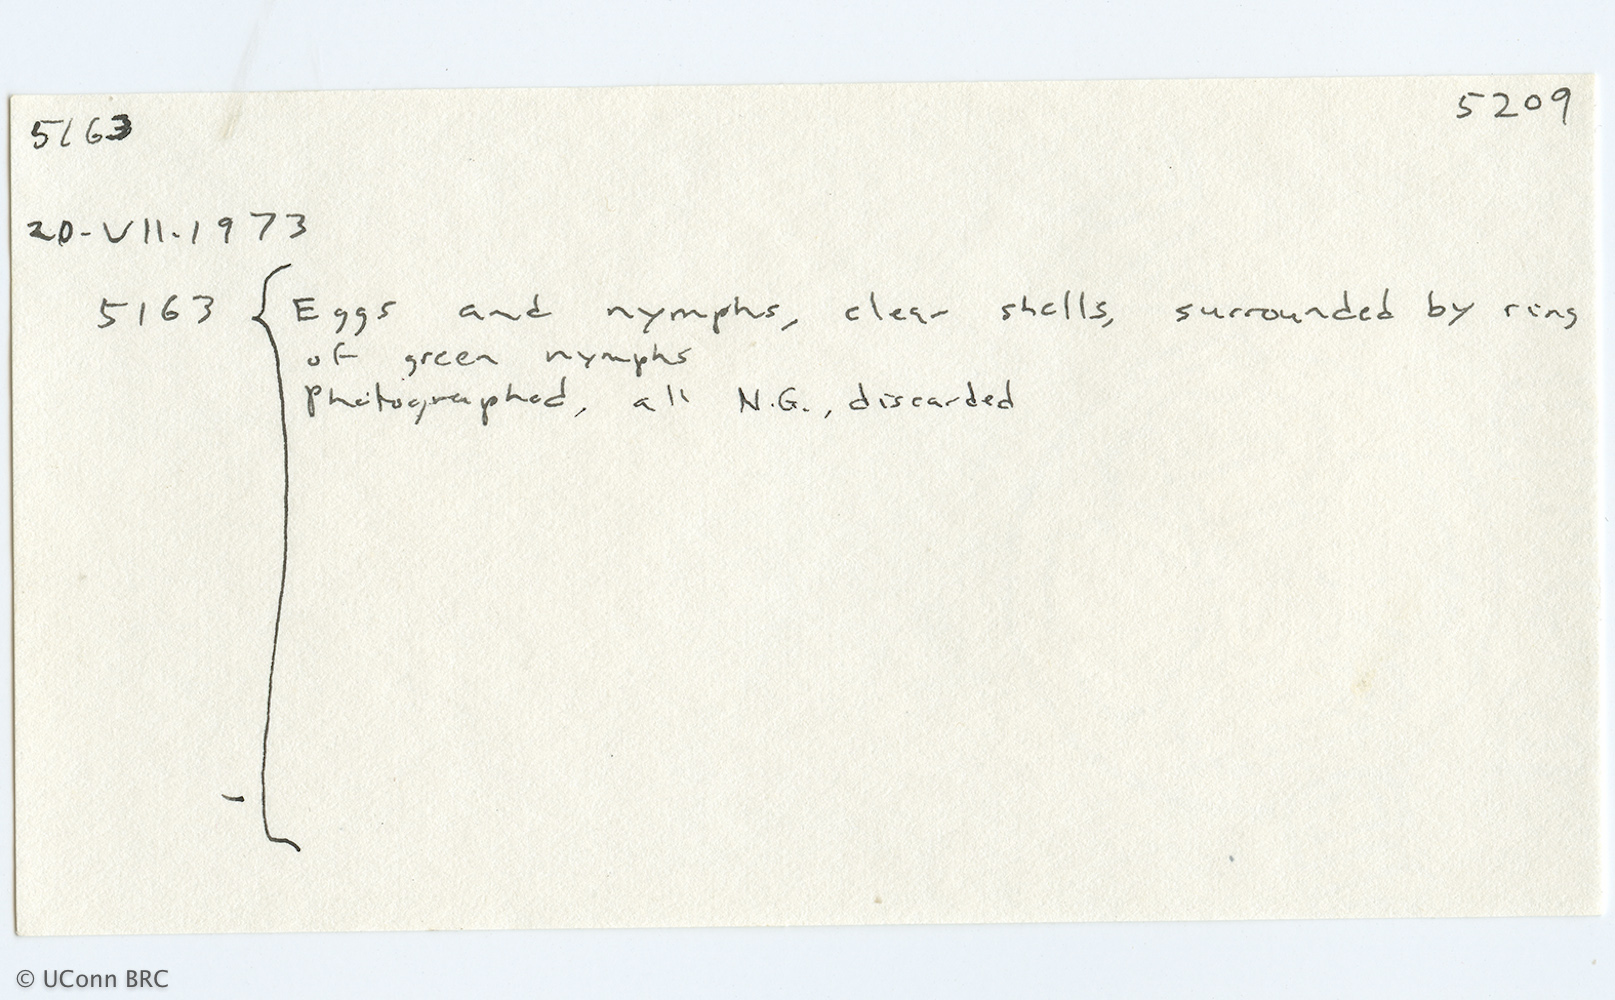 5163
5209
20-VII-1973
5163 { Eggs and nymphs, clear shells, surrounded by ring
of green nymphs
Photographed, all N.G., discarded
-
© UConn BRC